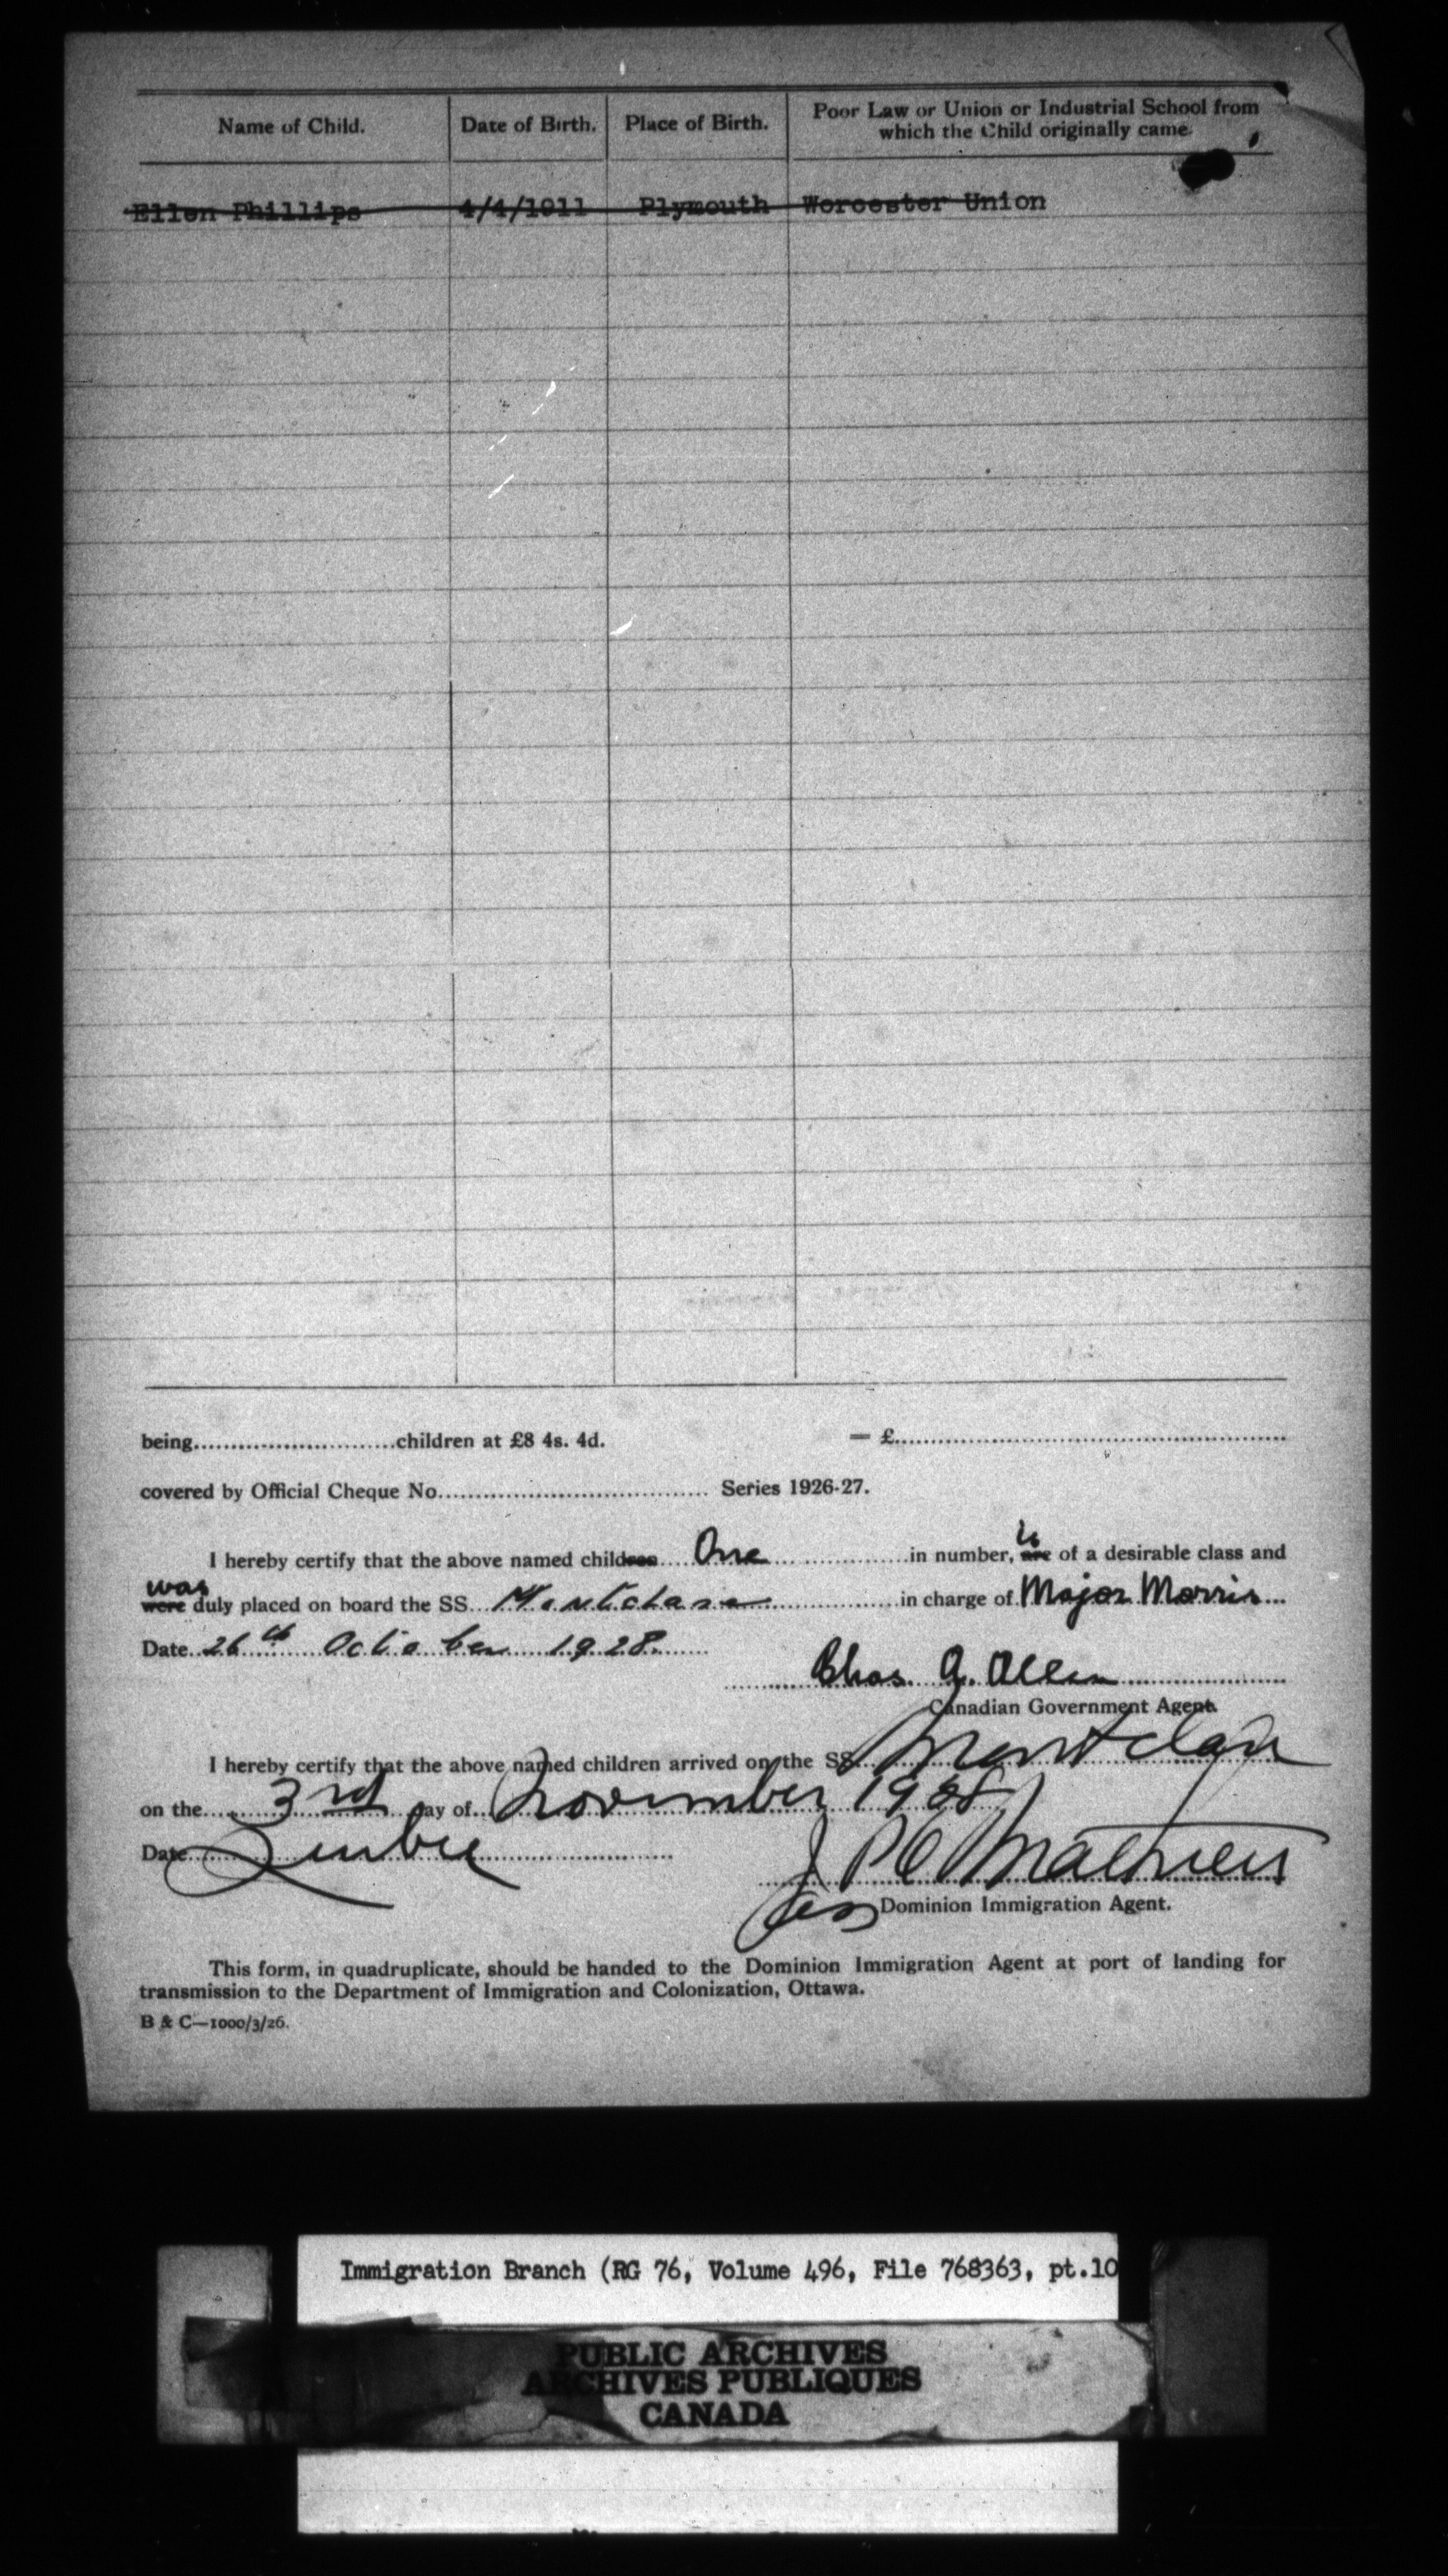 Name of Child. Date of Birth. Place of Birth. Poor Law or Union or Industrial School from
which the Child originally came.
Ellen Phillips 4/4/1911 Plymouth Worcester Union
being...........................children at £8 4s. 4d. — £....................................................
covered by Official Cheque No.................................... Series 1926-27.
I hereby certify that the above named children.....One...................in number, is are of a desirable class and
was
were duly placed on board the SS...Montclare.................in charge of Major Morris...
Date..26th October 1928.......
Chas. A. Allen
Canadian Government Agent.
I hereby certify that the above named children arrived on the SS. Montclare
on the.....3rd.....day of...November 1928
Date Quebec
J P C Mathieu
for Dominion Immigration Agent.
This form, in quadruplicate, should be handed to the Dominion Immigration Agent at port of landing for
transmission to the Department of Immigration and Colonization, Ottawa.
B & C—1000/3/26.
Immigration Branch (RG 76, Volume 496, File 768363, pt.10
PUBLIC ARCHIVES
ARCHIVES PUBLIQUES
CANADA